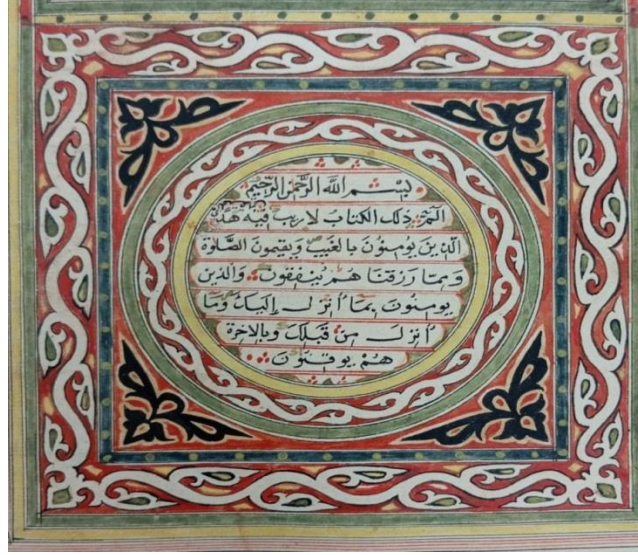 بِسْمِ اللهِ الرَّحْمٰنِ الرَّحِيْمِ
الٓمّٓ ذٰلك الكتابُ لا ريبَ فيه هدًى
الّذينَ يؤمنُونَ بالغيبِ ويقيمونَ الصَّلوةَ
وممّا رزقنَا هُم يُنفقُونَ وَالّذينَ
يومنُونَ بِمَا اُنزلَ اِليكَ وَمَا
اُنزلَ مِنْ قَبلكَ وبالاخرةِ
هُمْ يوقنُونَ